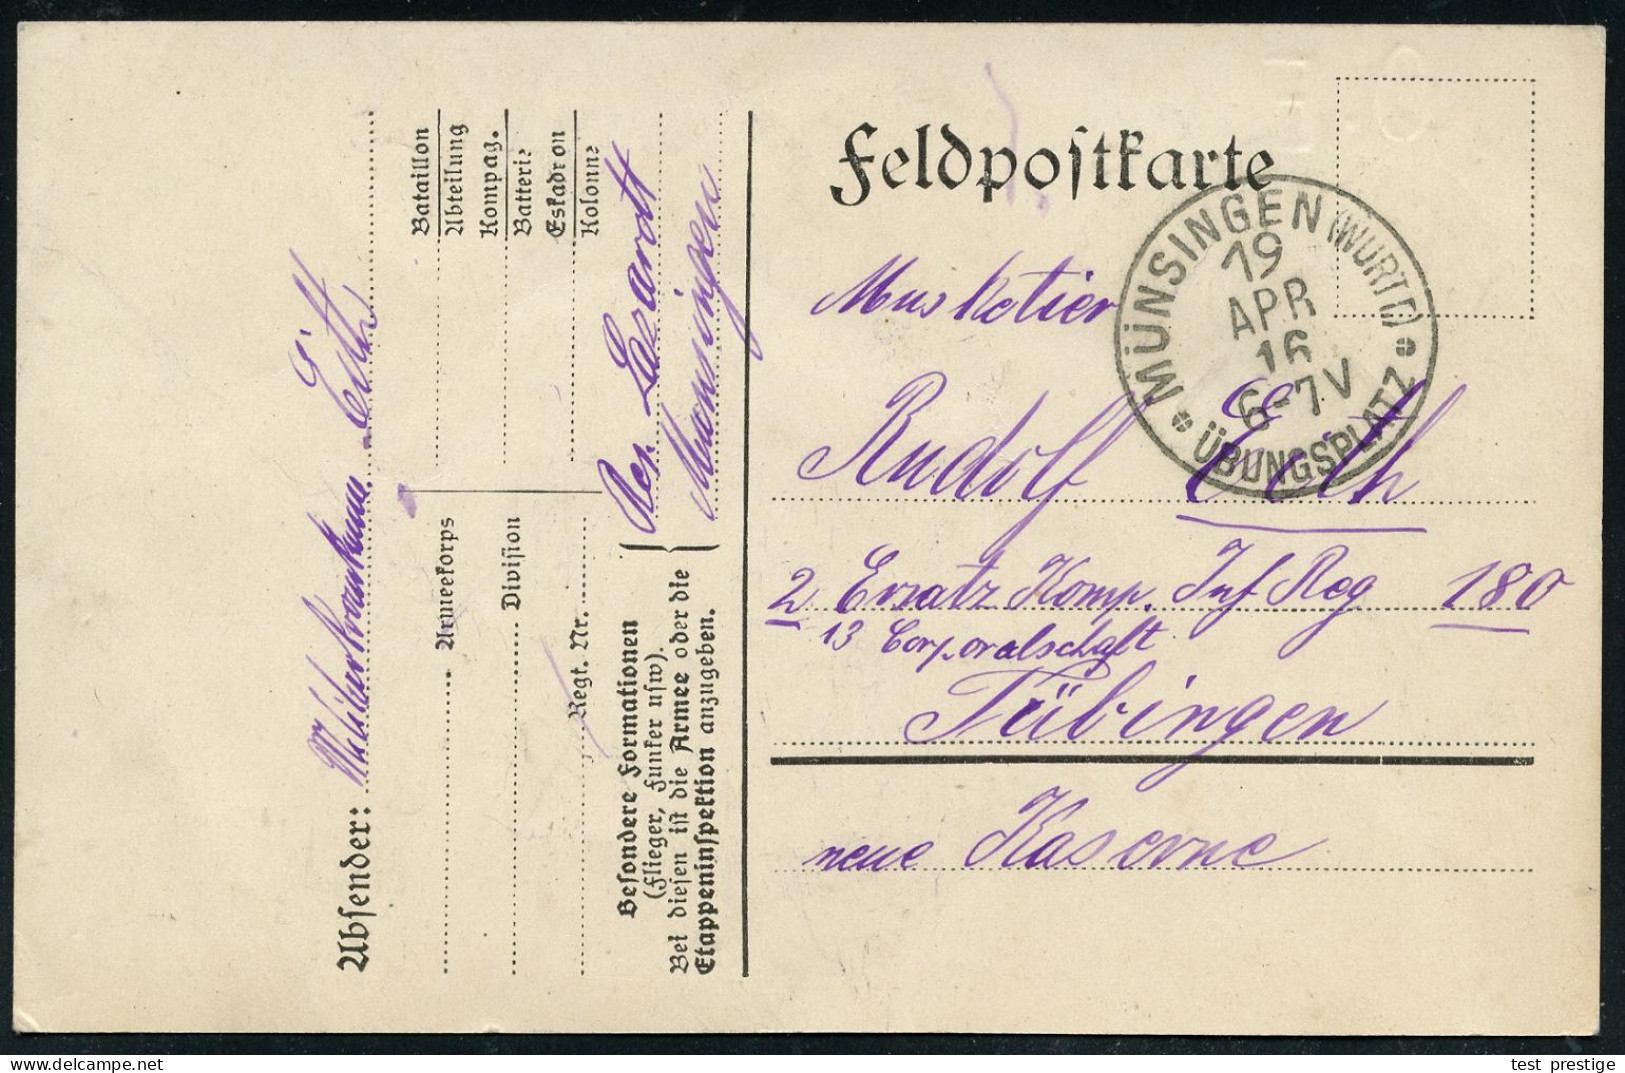 Feldpostkarte
MÜNSINGEN (WÜRTT.)
19
APR
16
6-7V
ÜBUNGSPLATZ
Musketier
Rudolf Eith
2 Ersatz Komp. Inf Reg 180
13 Corporalschaft
Tübingen
neue Kaserne
Absender: Eith
Bataillon
Abteilung
Kompag.
Batterie
Eskadron
Kolonne
Armeekorps
Division
Regt. Nr.
Besondere Formationen
(Flieger, Funker usw).
Bei diesen ist die Armee oder die
Etappeninspektion anzugeben.
Res Lazarett
Münsingen
test prestige